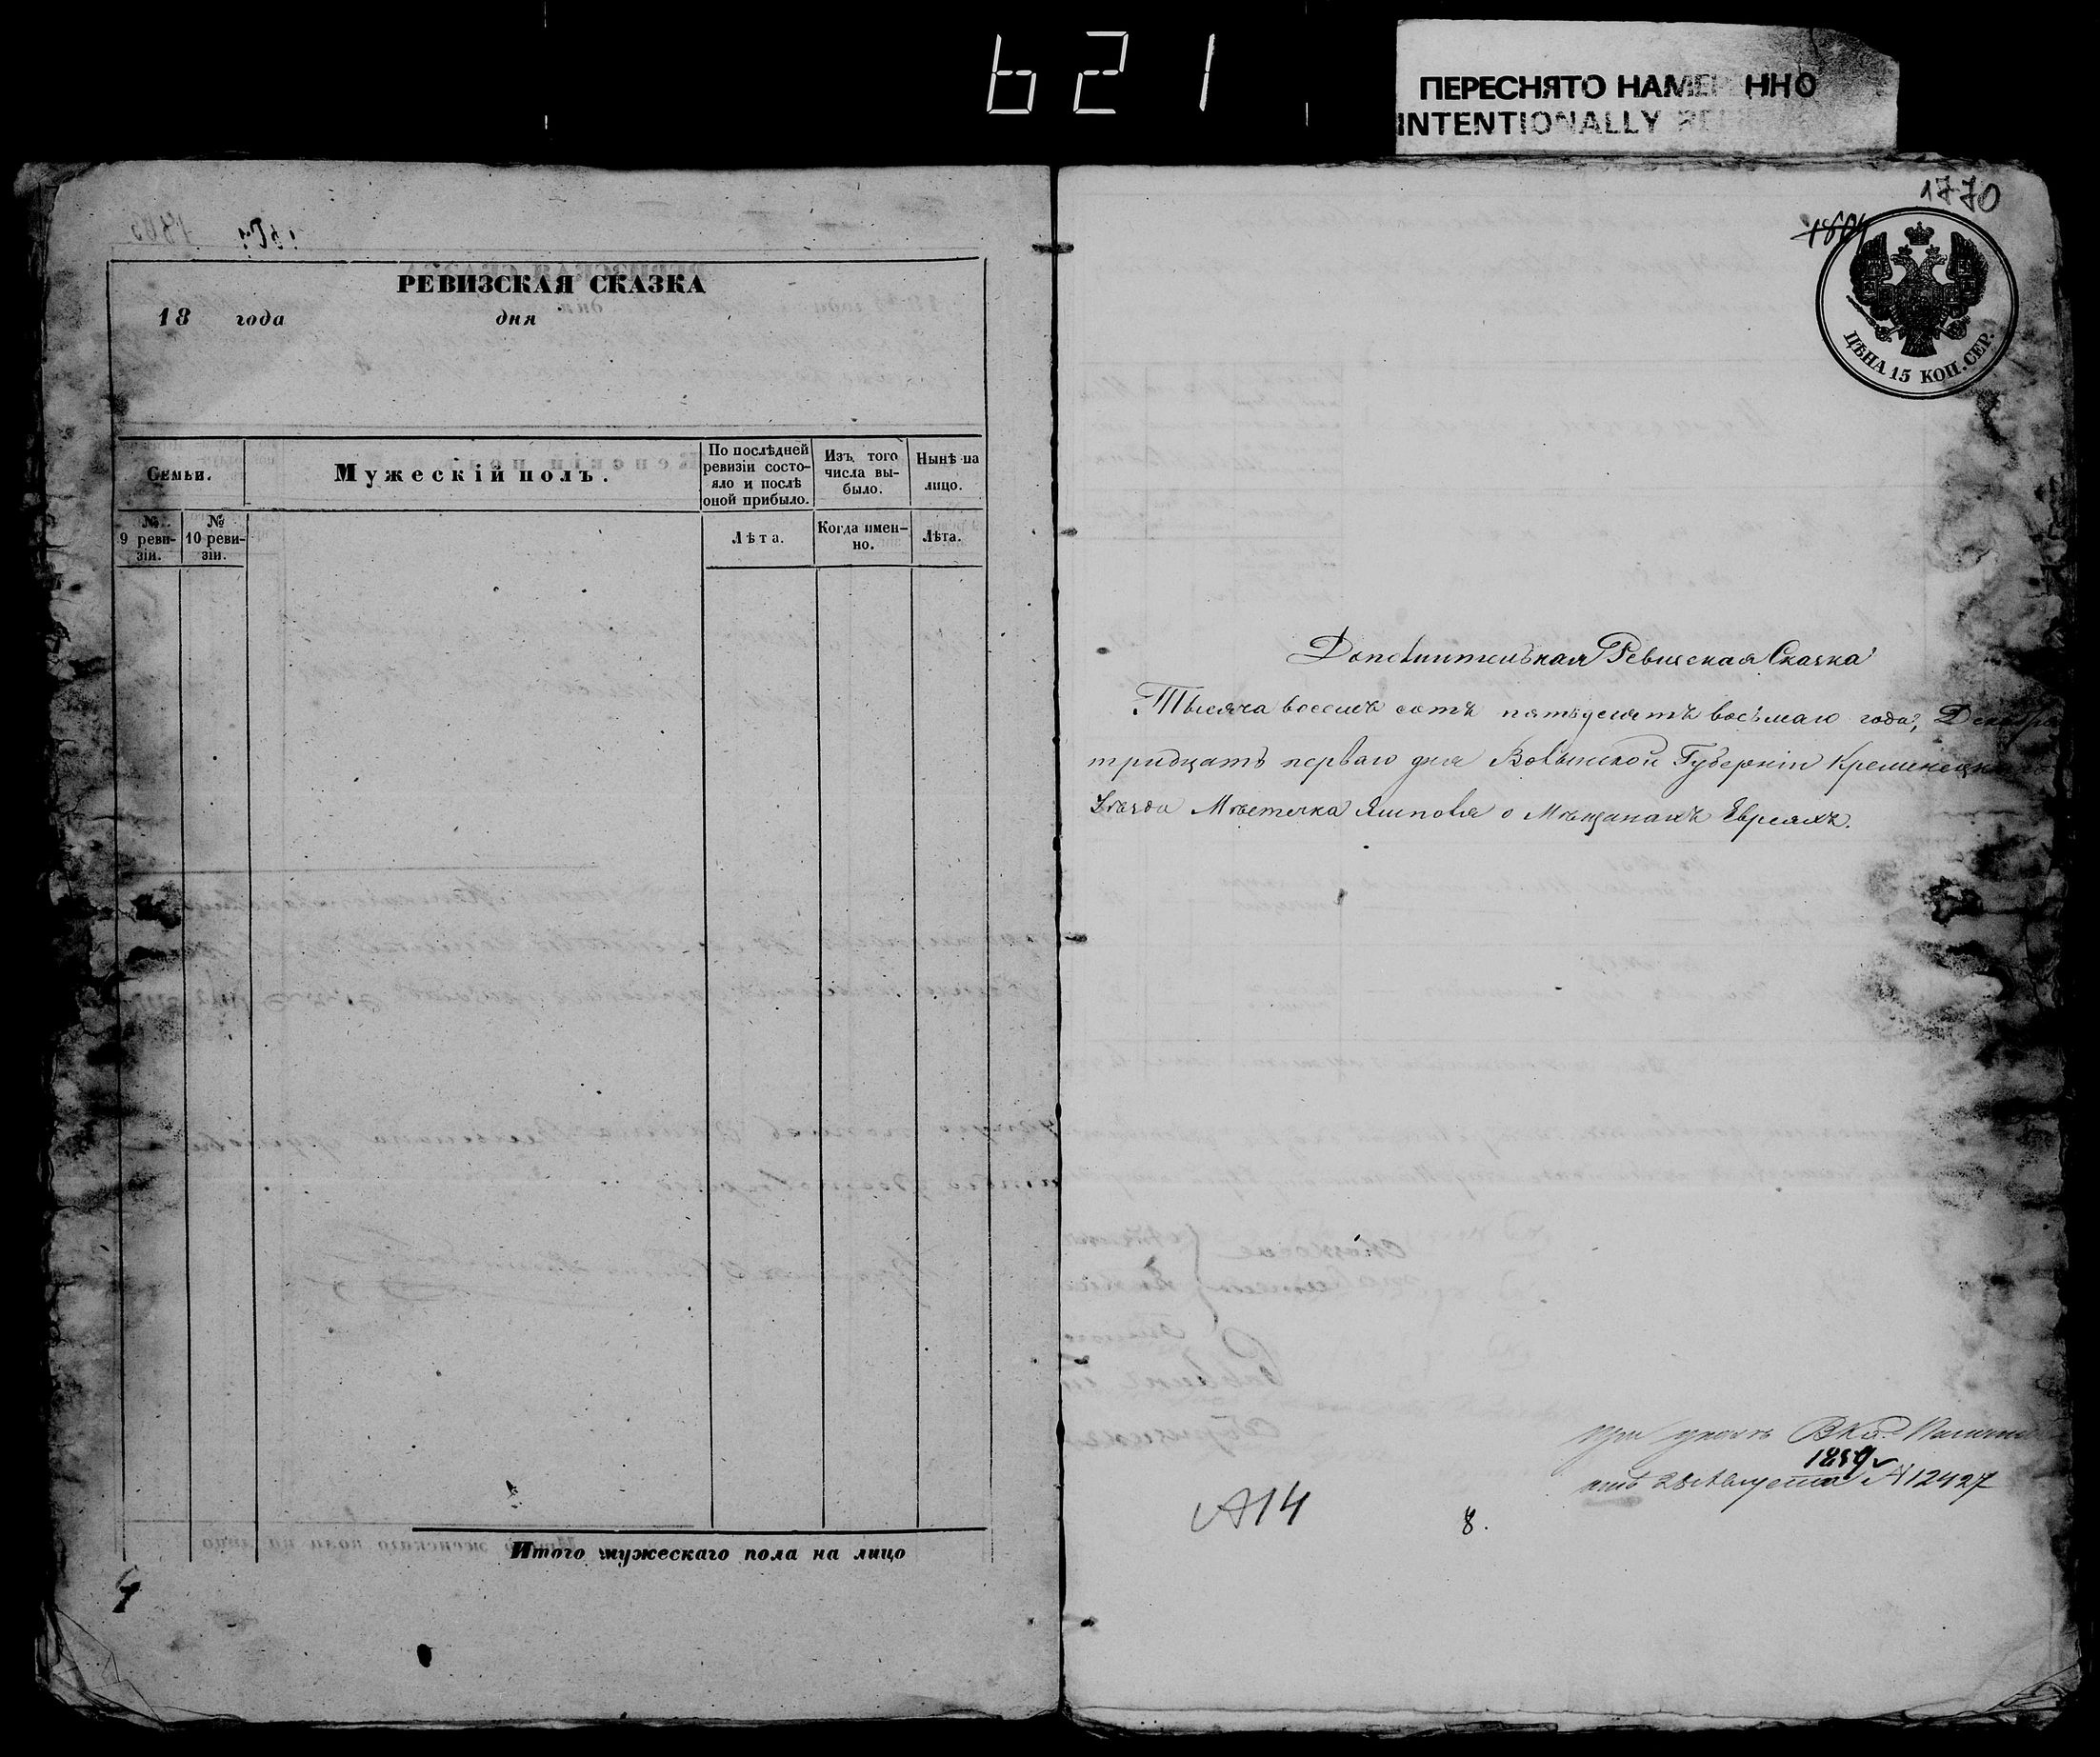 621
ПЕРЕСНЯТО НАМЕР ННО
INTENTIONALLY
РЕВИЗСКАЯ СКАЗКА
18 года дня
Семьи.
Мужескій полъ.
По послѣдней ревизіи состо-
яло и послѣ
оной прибыло.
Изъ того
числа вы-
было.
Нынѣ на
лицо.
№
9 реви-
зіи.
№
10 реви-
зіи.
Лѣта.
Когда имен-
но.
Лѣта.
Итого мужескаго пола на лицо
1770
1804
ЦѢНА 15 КОП. СЕР.
Дополнительная Ревизская Сказка
Тысяча восемь сотъ пятьдесятъ восьмаго года, Декабря
тридцать перваго дня Волынской Губерніи Кременецкаго
Уѣзда Мѣстечка Ямполя о Мѣщанахъ Евреяхъ.
при указѣ В. К.
1859
отъ 28 Августа № 12427
№14
8.